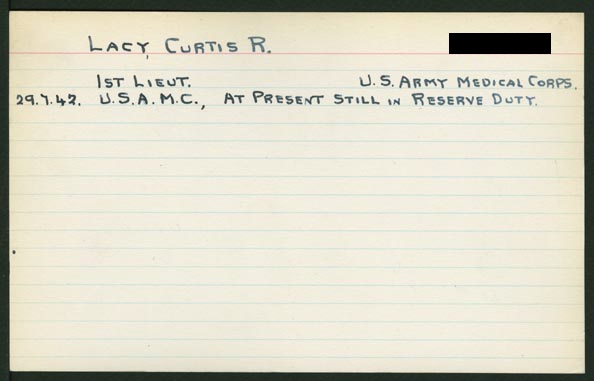 LACY, CURTIS R.
1ST LIEUT. U.S. ARMY MEDICAL CORPS.
29.7.42. U.S.A.M.C., AT PRESENT STILL IN RESERVE DUTY.